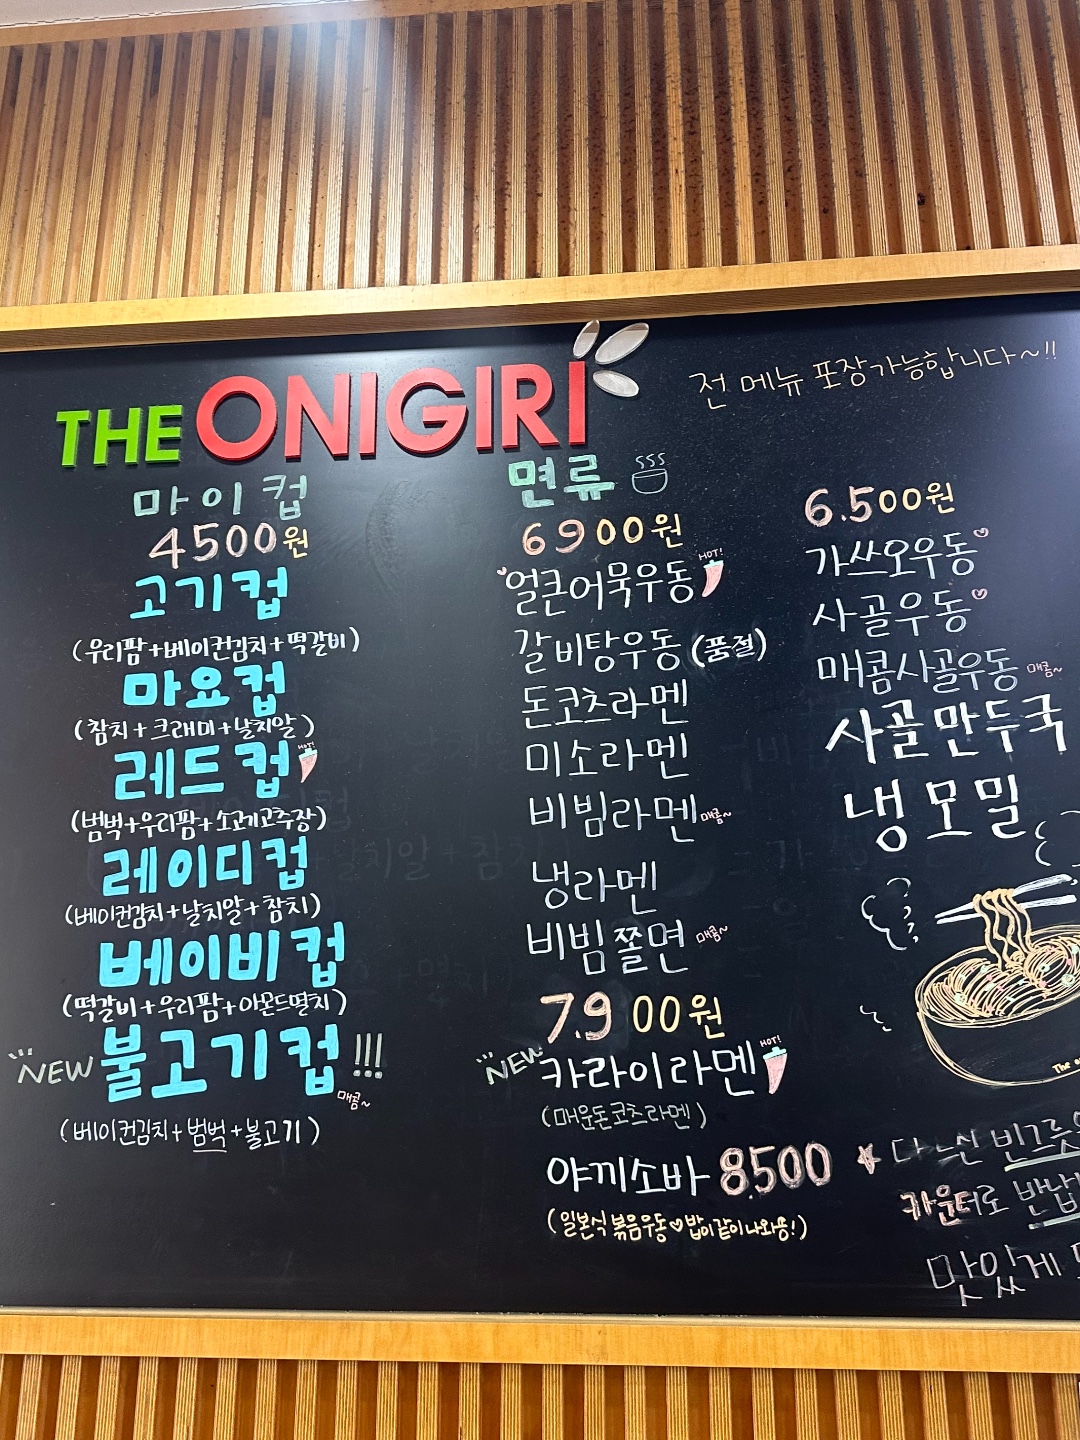 THE ONIGIRI
전 메뉴 포장가능합니다~!!
마이컵
4500원
고기컵
(우리팜+베이컨김치+떡갈비)
마요컵
(참치+크래미+날치알)
레드컵 HOT!
(범벅+우리팜+소고기고추장)
레이디컵
(베이컨김치+날치알+참치)
베이비컵
(떡갈비+우리팜+아몬드멸치)
NEW 불고기컵!!!
매콤~
(베이컨김치+범벅+불고기)
면류
6900원
얼큰어묵우동 HOT!
갈비탕우동 (품절)
돈코츠라멘
미소라멘
비빔라멘 매콤~
냉라멘
비빔쫄면 매콤~
7.900원
NEW 카라이라멘 HOT!
(매운돈코츠라멘)
야끼소바 8.500
(일본식 볶음우동♡밥이같이나와용!)
6.500원
가쓰오우동♡
사골우동♡
매콤사골우동 매콤~
사골만두국
냉모밀
다 드신 빈그릇
카운터로 반납
맛있게